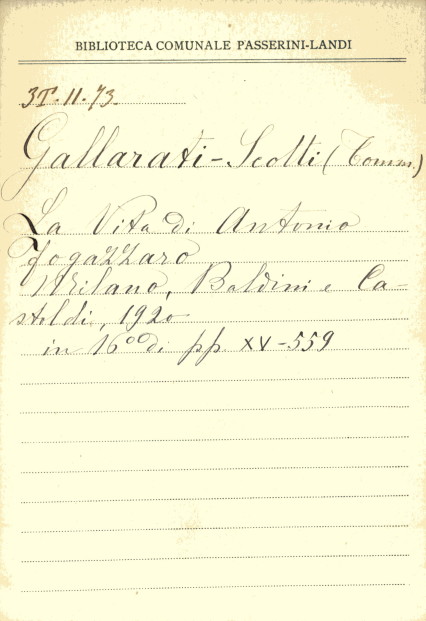 BIBLIOTECA COMUNALE PASSERINI-LANDI
3T.II.73.
Gallarati-Scotti (Tomm.)
La Vita di Antonio
Fogazzaro
Milano, Baldini e Ca-
stoldi, 1920
in 16° di pp. XV-559